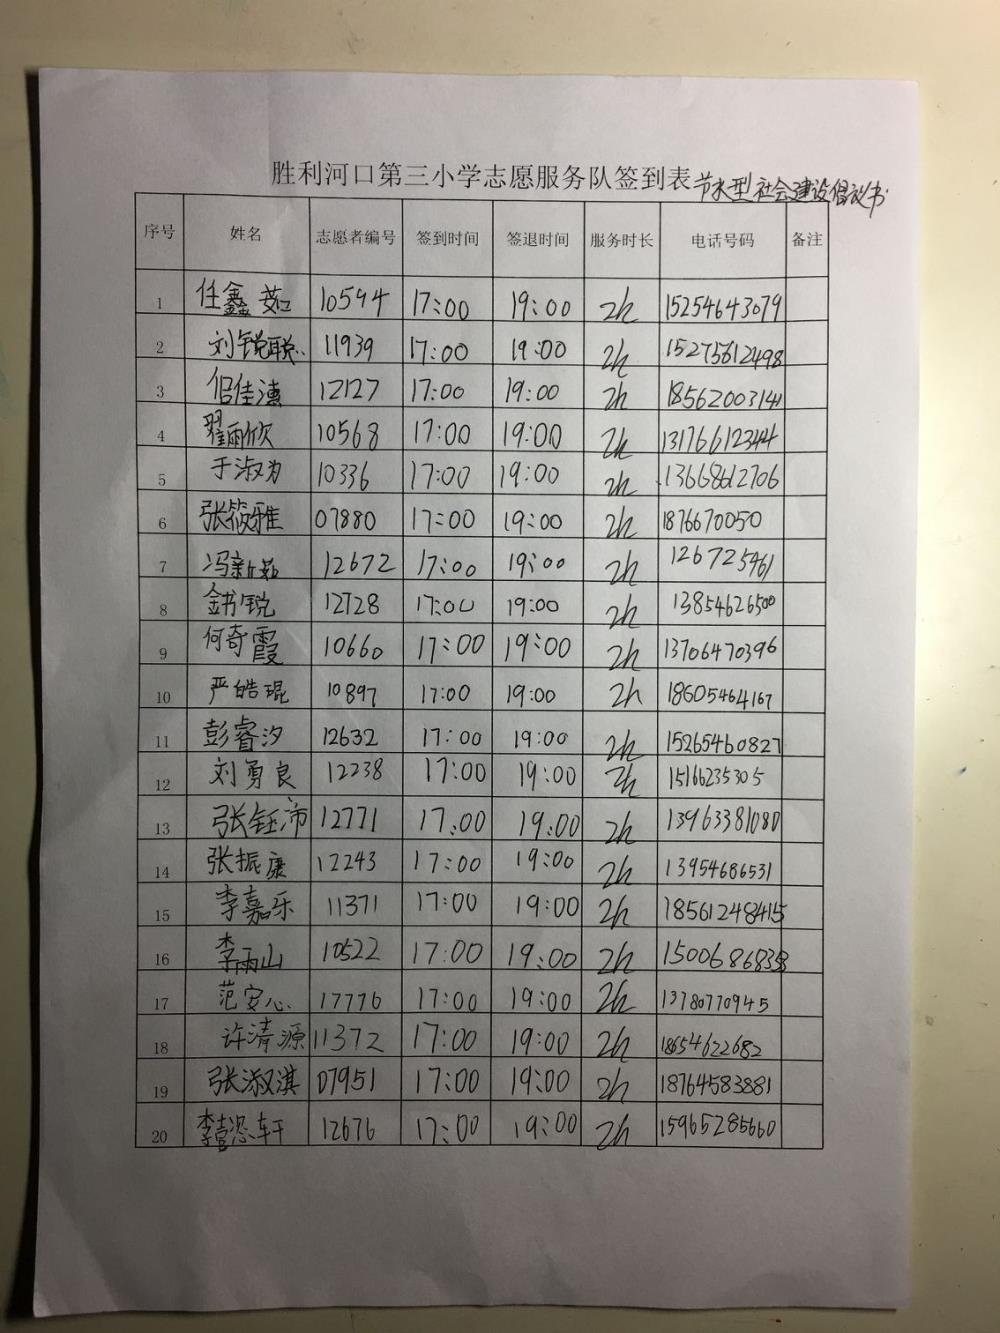 胜利河口第三小学志愿服务队签到表 节水型社会建设倡议书
序号 姓名 志愿者编号 签到时间 签退时间 服务时长 电话号码 备注
1 任鑫茹 10594 17:00 19:00 2h 15254643079
2 刘锐聪 11939 17:00 19:00 2h 15275612498
3 佀佳潓 12127 17:00 19:00 2h 18562003141
4 翟雨欣 10568 17:00 19:00 2h 13176612344
5 于淑为 10336 17:00 19:00 2h 13668612706
6 张筱雅 07880 17:00 19:00 2h 1876670050
7 冯新茹 12672 17:00 19:00 2h 126725961
8 锐 12728 17:00 19:00 2h 13854626500
9 何奇霞 10660 17:00 19:00 2h 13706470396
10 严皓琨 10897 17:00 19:00 2h 18605464167
11 彭睿汐 12632 17:00 19:00 2h 15265460827
12 刘勇良 12238 17:00 19:00 2h 15166235305
13 张钰沛 12771 17:00 19:00 2h 13963381080
14 张振康 12243 17:00 19:00 2h 13954686531
15 李嘉乐 11371 17:00 19:00 2h 18561248415
16 李雨山 10522 17:00 19:00 2h 15006868358
17 范安心 17776 17:00 19:00 2h 13780770945
18 许清源 11372 17:00 19:00 2h 18654622682
19 张淑淇 07951 17:00 19:00 2h 18764583881
20 李轩 12676 17:00 19:00 2h 15965285660